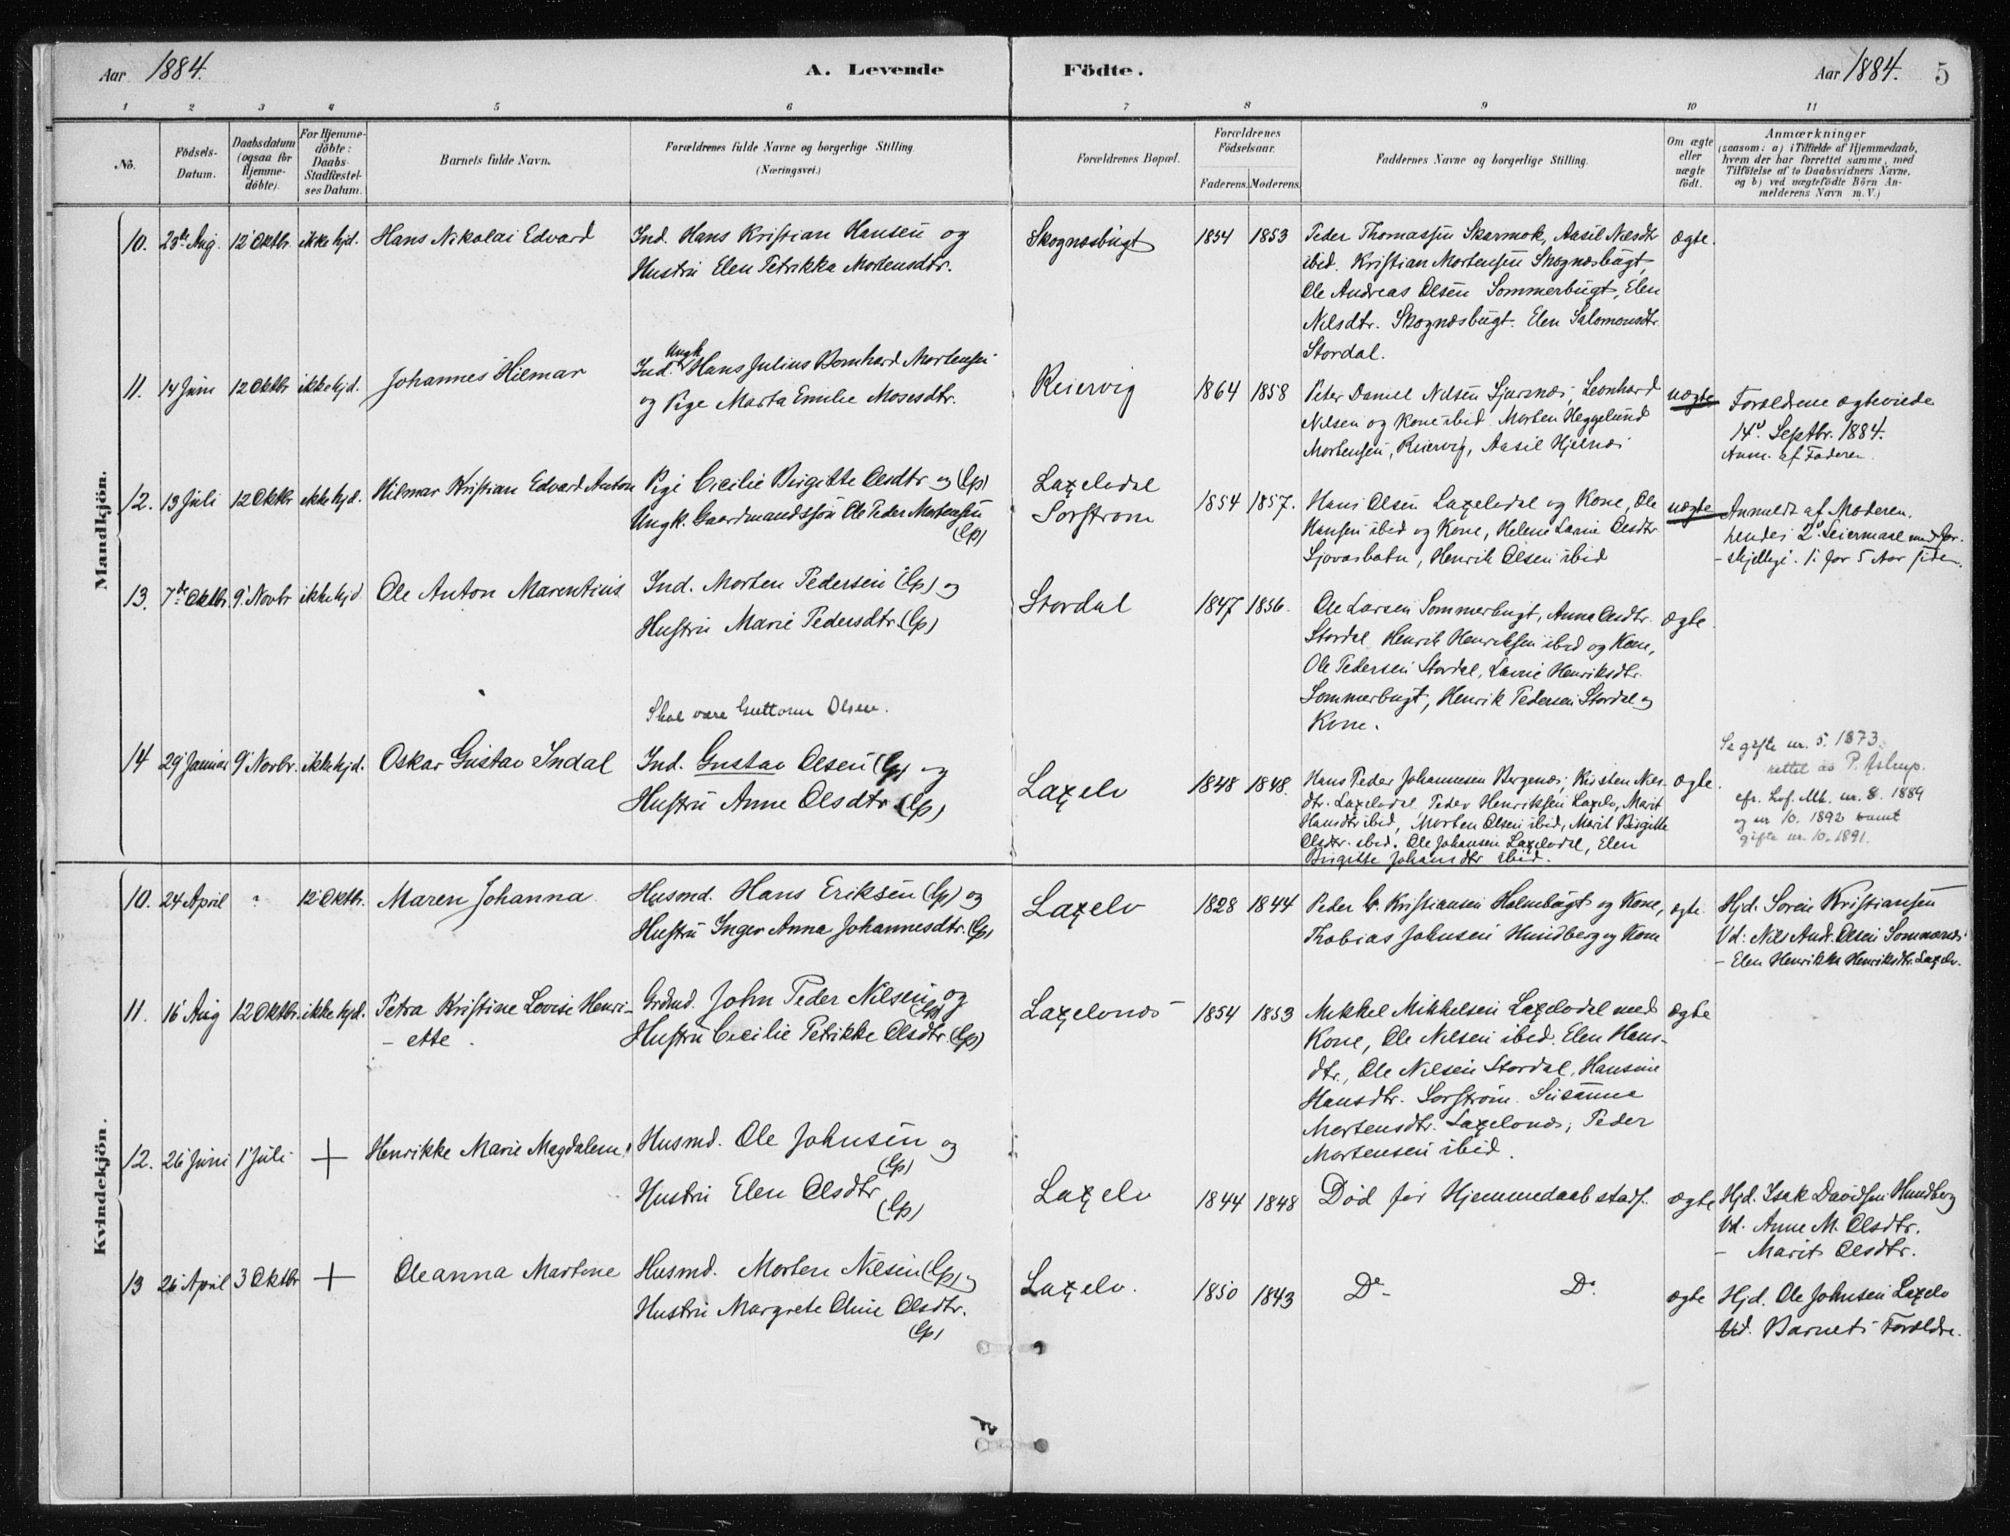 Aar 1884. A. Levende Födte. Aar 1884. 5
1 2 3 4 5 6 7 8 9 10 11
No.
Födsels-
Datum.
Daabsdatum
(ogsaa for
Hjemme-
döbte).
For Hjemme-
döbte:
Daabs-
Stadfæstel-
ses Datum.
Barnets fulde Navn.
Forældrenes fulde Navne og borgerlige Stilling
(Næringsvei.)
Forældrenes Bopæl.
Forældrenes
Födselsaar.
Faderens. Moderens.
Faddernes Navne og borgerlige Stilling.
Om ægte
eller
uægte
födt.
Anmærkninger
(saasom: a) i Tilfælde af Hjemmedaab,
hvem der har forrettet samme, med
Tilföielse af to Daabsvidners Navne,
og b) ved uægtefödte Börn An-
melderens Navn m. V.)
Mandkjön.
10. 23de Aug. 12 Oktbr. ikke hjd. Hans Nikolai Edvard
Ind. Hans Kristian Hansen og
Hustru Elen Petrikka Mortensdtr.
Skognæsbugt 1854 1853
Peder Thomassen Skarmok, Aasil Nilsdtr
ibid. Kristian Mortensen Skognæsbugt,
Ole Andreas Olsen Sommerbugt, Elen
Nilsdtr. Skognæsbugt. Elen Salomonsdtr.
Stordal.
ægte.
11. 14 Juni 12 Oktbr ikke hjd. Johannes Hilmar
Ungk.
Ind. Hans Julius Bernhard Mortensen
og Pige Marta Emilie Mosesdtr.
Reiervig 1864 1858
Peter Daniel Nilsen Sjursnæs, Leonhard
Nilsen og Kone ibid. Morten Heggelund
Mortensen, Reiervig, Aasil Hjelnæs
uægte
Forældrene ægteviede
14d Septbr. 1884.
Anm. af Faderen.
12. 13 Juli 12 Oktbr ikke hjd. Hilmar Kristian Edvard Anton
Pige Cecilie Birgitte Olsdtr og (Lp)
Ungk. Gaardmandssøn Ole Peder Mortensen
(Lp)
Laxelvdal
Sorstrøm
1854 1857.
Hans Olsen Laxelvdal og Kone, Ole
Hansen ibid og Kone, Helene Lavine Olsdtr
Sjøvasbotn, Henrik Olsen ibid
uægte
Anmeldt af Moderen.
hendes 2d Leiermaal med for-
-skjellige. 1. for 5 Aar siden.
13. 7de Oktbr. 9 Novbr ikke hjd Ole Anton Marentius
Ind. Morten Pedersen (Lp) og
Hustru Marie Pedersdtr. (Lp)
Stordal 1847 1856.
Ole Larsen Sommerbugt, Anna Olsdtr.
Stordal, Henrik Henriksen ibid og Kone,
Ole Pedersen Stordal, Lavine Henriksdtr.
Sommerbugt, Henrik Pedersen Stordal og
Kone.
ægte.
Skal være Guttorm Olsen.
14 29 Januar 9 Novbr. ikke hjd. Oskar Gustav Indal
Ind. Gustav Olsen (Lp) og
Hustru Anne Olsdtr. (Lp)
Laxelv 1848 1848.
Hans Peder Johannesen Bergenæs, Kirsten Niels-
dtr. Laxelvdal Peder Henriksen Laxelv, Marit
Hansdtr ibid, Morten Olsen ibid, Marit Birgitte
Olsdtr. ibid. Ole Johansen Laxelvdal, Elen
Birgitte Johansdtr ibid.
ægte.
Se gifte nr. 5. 1873.
rettet av P. Astrup.
cfr. Lof. Mk. nr. 8. 1889
og nr 10. 1892 samt
gifte nr. 10. 1891.
Kvindekjön.
10. 24 April " 12 Oktbr. Maren Johanna
Husmd. Hans Eriksen (Lp) og
Hustru Inger Anna Johannesdtr. (Lp)
Laxelv 1828 1844
Peder Kristiansen Holmbugt og Kone,
Thobias Johnsen Hundberg og Kone
ægte.
Hjd. Søren Kristiansen
Vd: Nils Andr. Olsen Sommenæs
- Elen Henrikke Henriksdtr. Laxelv.
11. 16 Aug 12 Oktbr. ikke hjd. Petra Kristine Lovise Henri-
- ette.
Grdmd. John Peder Nilsen og
(Lp)
Hustru Cecilie Petrikke Olsdtr (Lp)
Laxelvnæs 1854 1853
Mikkel Mikkelsen Laxelvdal med
Kone, Ole Nilsen ibid. Elen Hans-
dtr., Ole Nilsen Stordal, Hansine
Hansdtr. Sorstrøm. Susanna
Mortensdtr. Laxelvnæs, Peder
Mortensen ibid.
ægte
12. 26 Juni 1 Juli + Henrikke Marie Magdalene
Husmd. Ole Johnsen og
(Lp)
Hustru Elen Olsdtr
(Lp)
Laxelv 1844 1848 Død før Hjemmedaab stadf. ægte
Hjd. Isak Davidsen Hundberg
Vd. Anne M. Olsdtr.
- Marit Olsdtr.
13 26 April 3 Oktbr + Oleanna Martine
Husmd. Morten Nilsen (Lp) og
Hustru Margrete Oline Olsdtr.
(Lp)
Laxelv. 1850 1843 Do Do ægte
Hjd. Ole Johnsen Laxelv
Vd. Barnets Forældre.